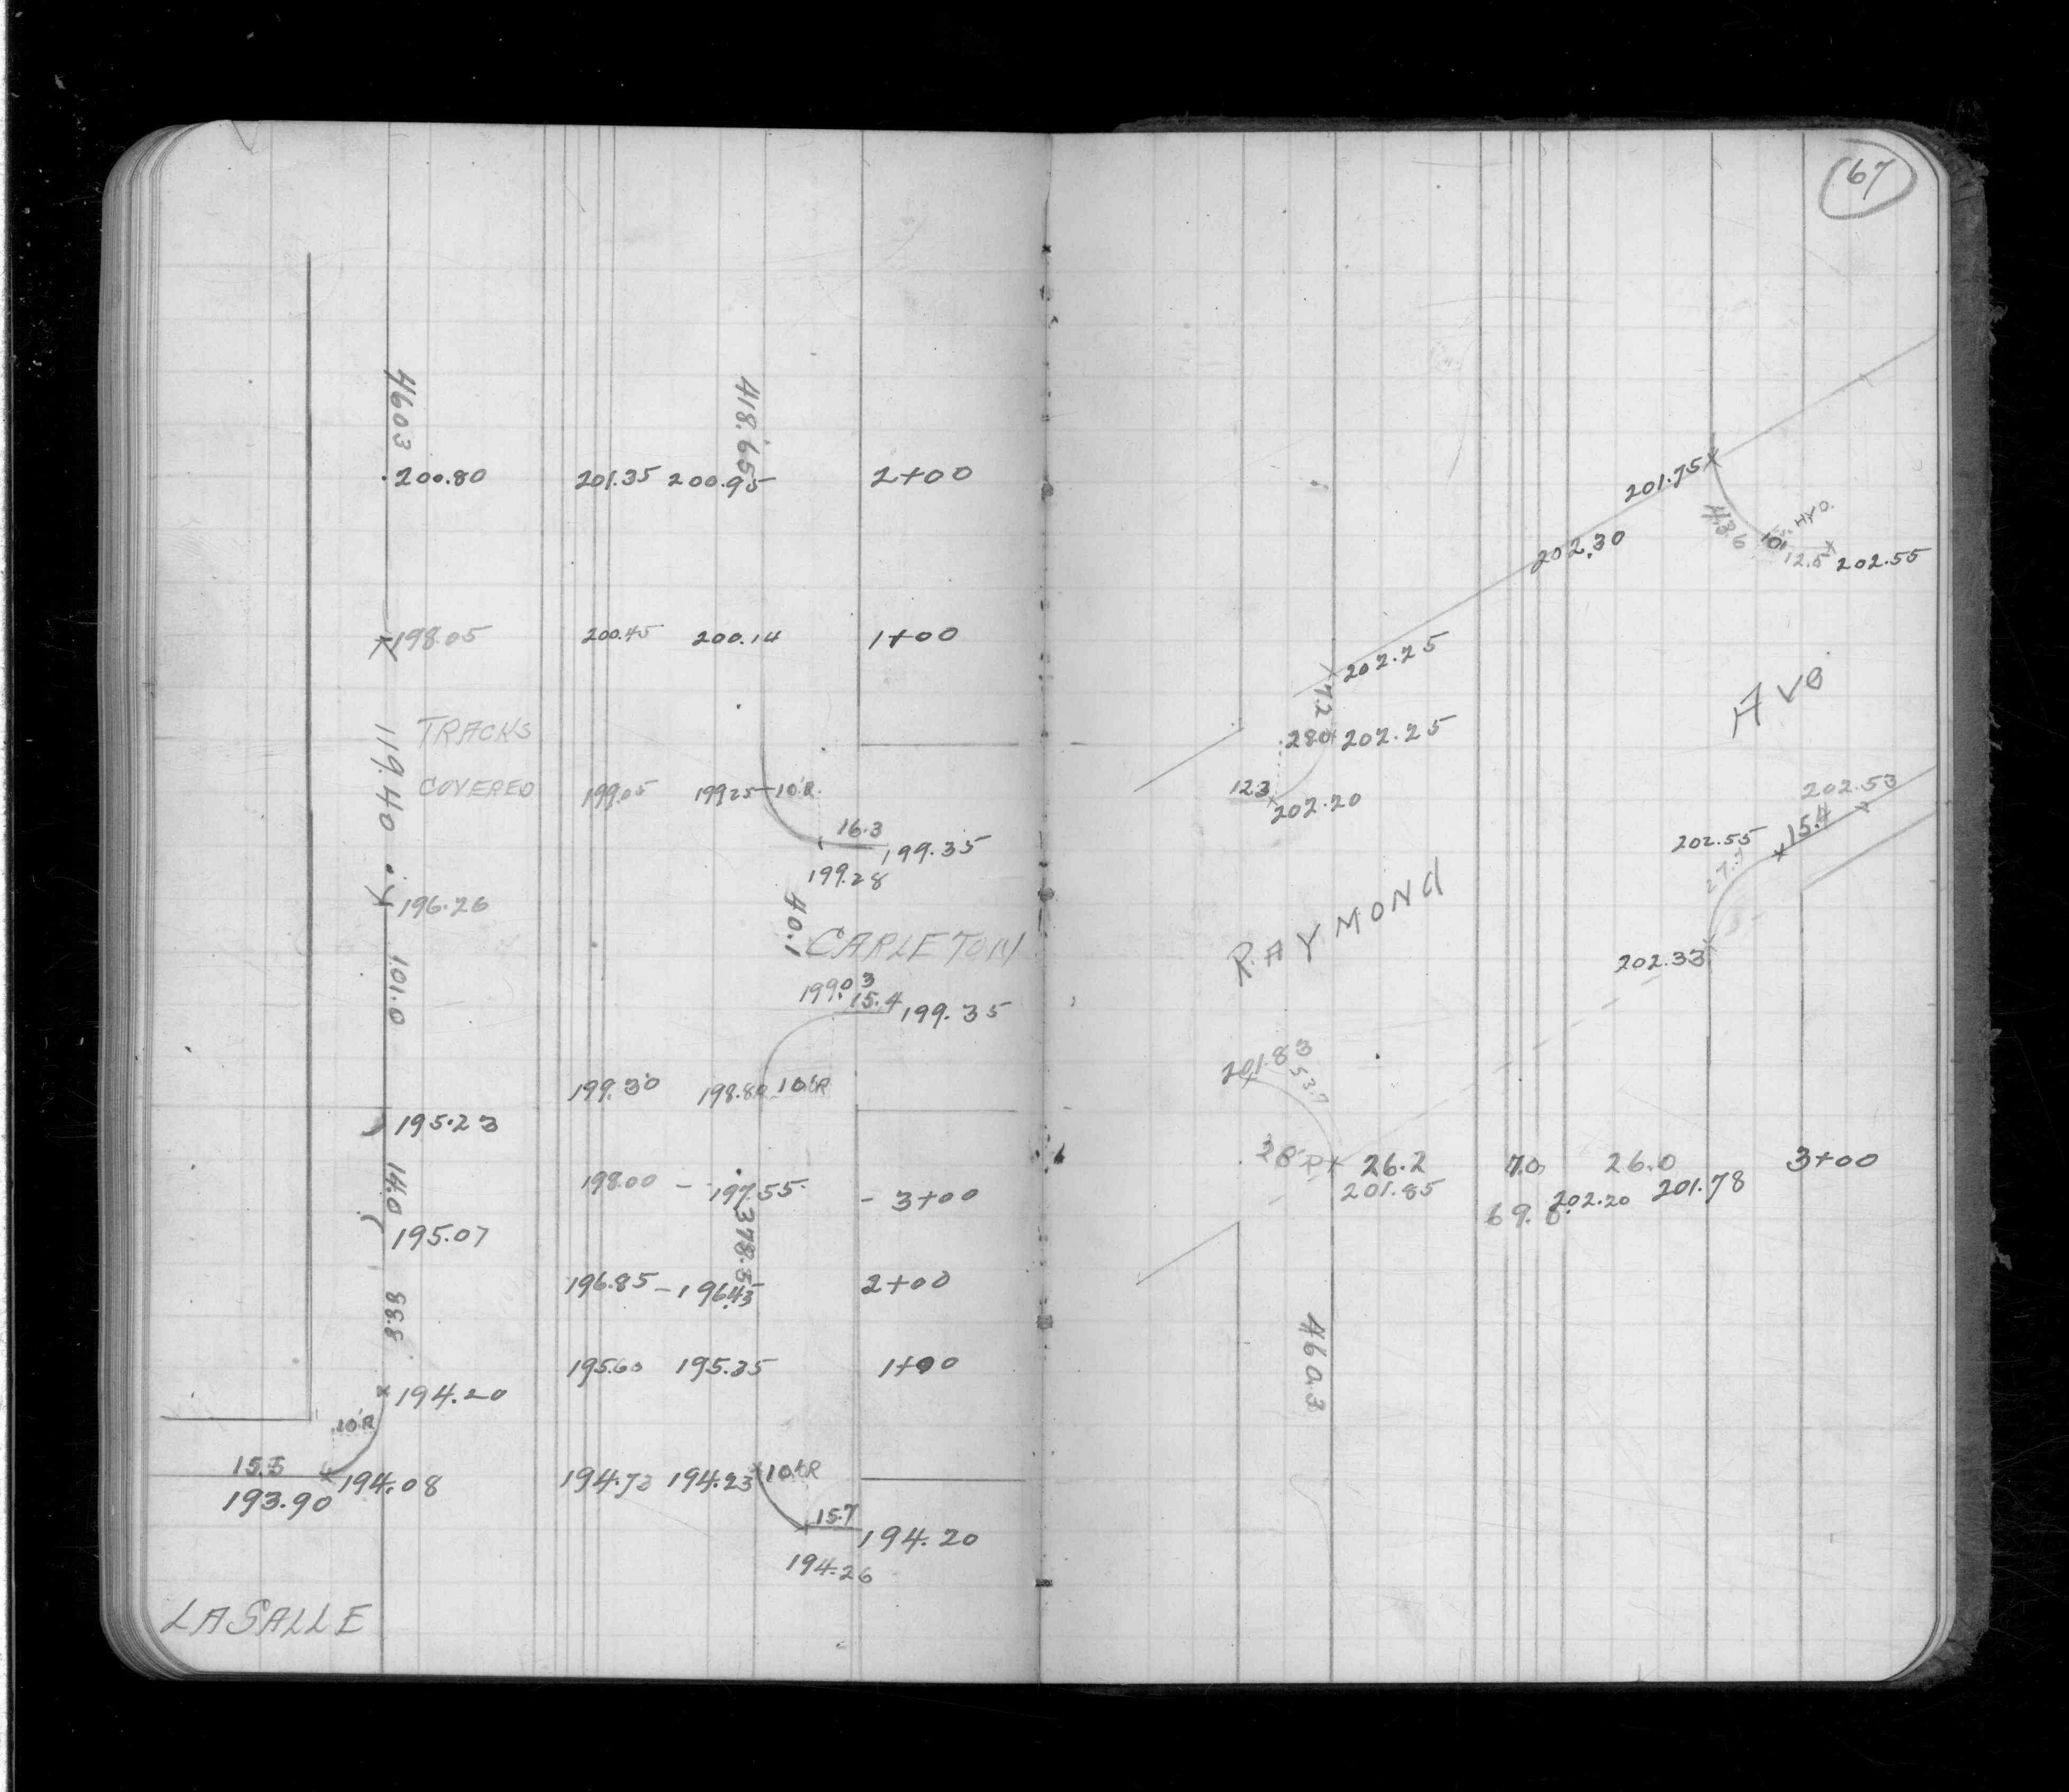 460.3
418.65
200.80 201.35 200.95 2+00
198.05 200.45 200.14 1+00
TRACKS
COVERED
119.40
199.05 199.25 10'R.
16.3
199.35
199.28
196.26
40.1
CARLETON
101.0
199.03
15.4
199.35
199.30 198.80 10'R
195.23
14.0
198.00 - 197.55 - 3+00
195.07
378.5
196.85 - 196.45 2+00
88.8
195.60 195.35 1+00
194.20
10'R
15.5
194.08
193.90
194.72 194.23 10'R
15.7
194.20
194.26
LASALLE
67
201.75
43.6
HYD.
12.5
202.55
202.30
202.25
7.2
28.0
202.25
12.3
202.20
AVE
202.53
15.4
202.55
27.7
202.33
RAYMOND
201.83
53.7
28'R
26.2 70. 26.0 3+00
201.85
69.8
202.20
201.78
460.3